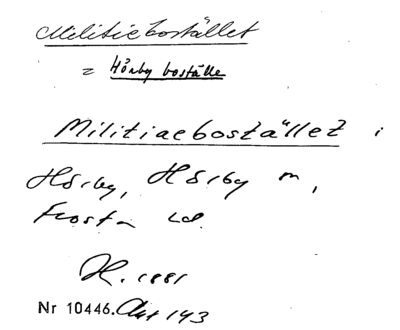 Militiebostället
= Hörby boställe
Militiaebostället i
Hörby, Hörby m,
Frosta Ld.
H. 1881
Nr 10446. Akt 143